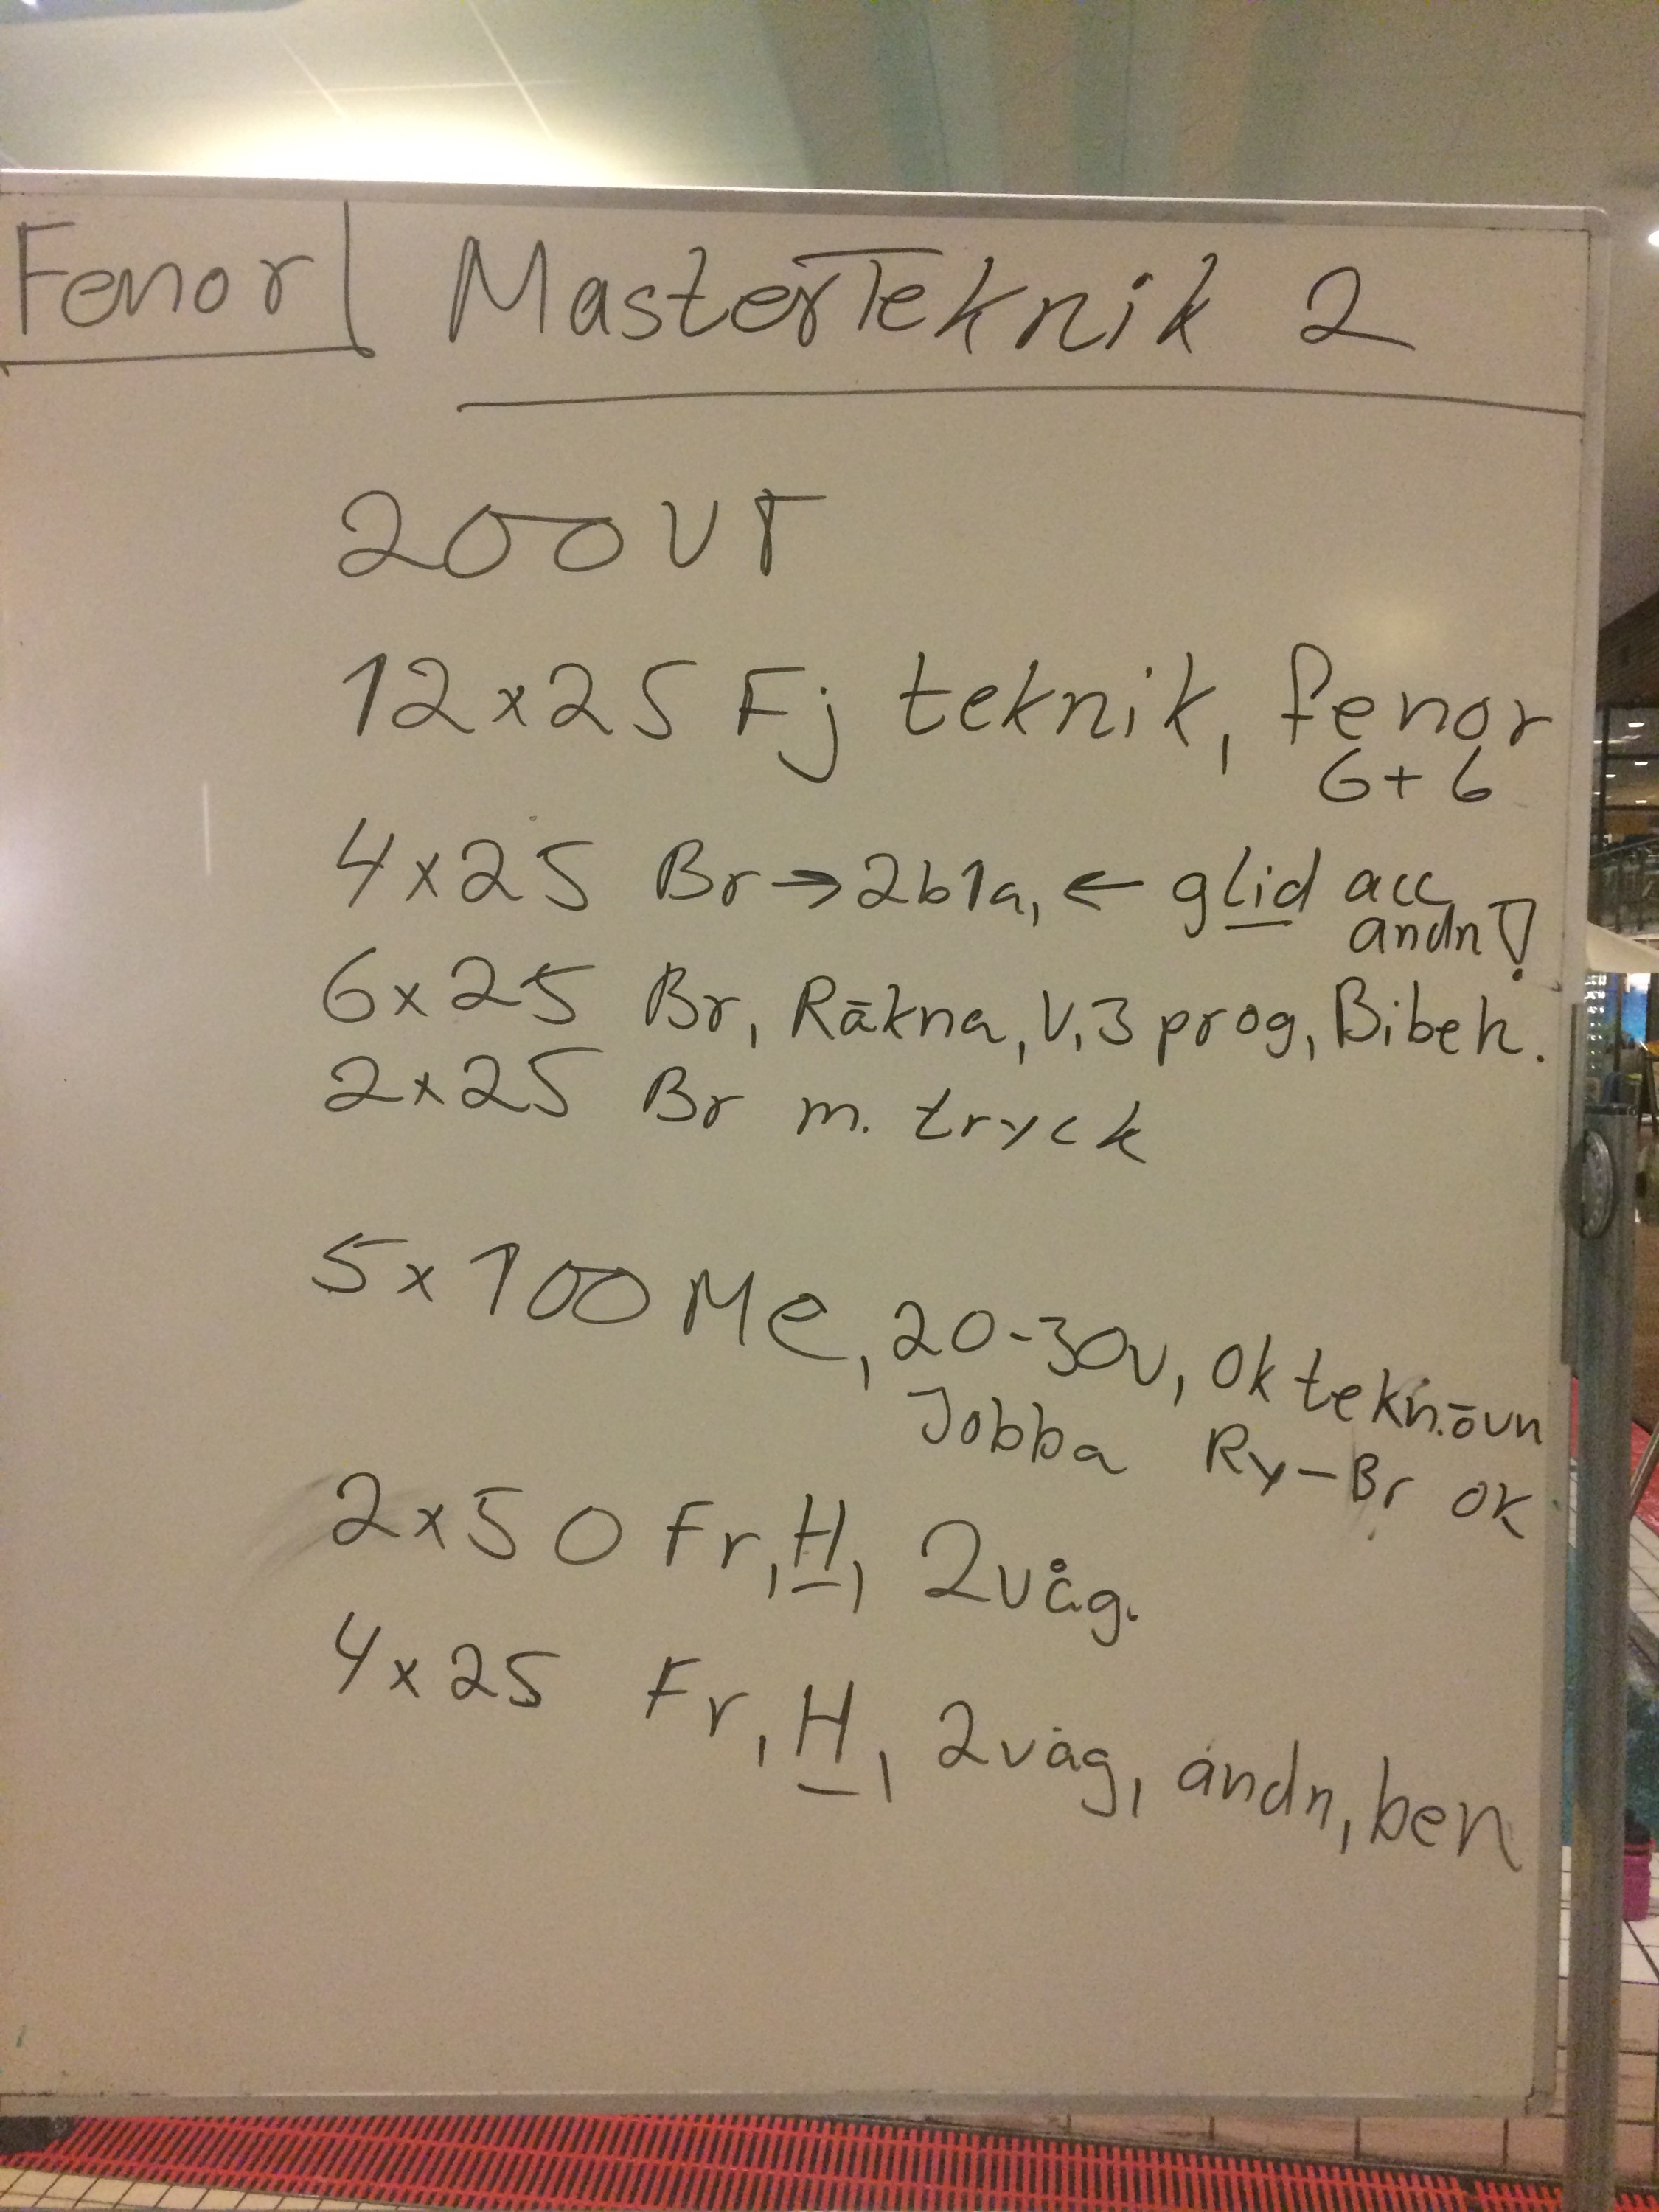 Fenor MasterTeknik 2
200 VT
12x25 Fj teknik, fenor
6+6
4x25 Br → 2b1a, ← glid acc
andn!
6x25 Br, Räkna, V, 3 prog, Bibeh.
2x25 Br m. tryck
5x100 Me, 20-30v, ok tekn.övn
Jobba Ry-Br ok
2x50 Fr, H, 2våg.
4x25 Fr, H, 2våg, andn, ben